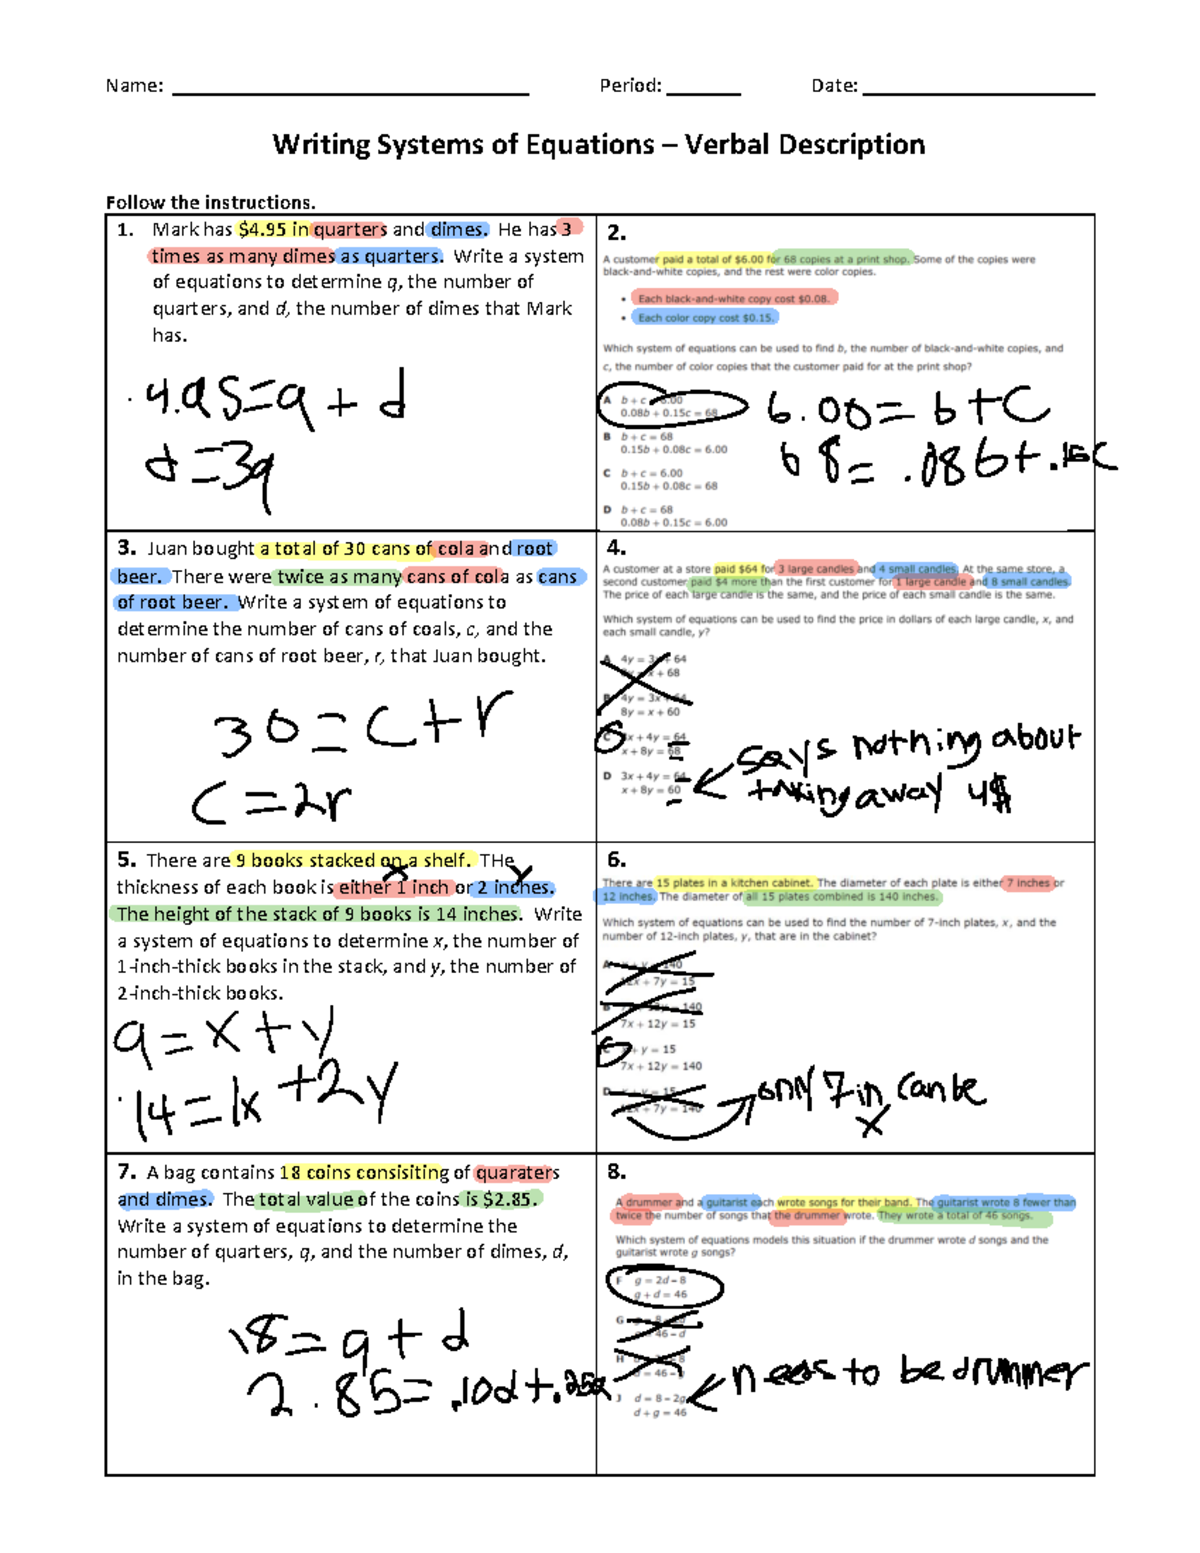 Name: Period: Date:
Writing Systems of Equations – Verbal Description
Follow the instructions.
1. Mark has $4.95 in quarters and dimes. He has 3
times as many dimes as quarters. Write a system
of equations to determine q, the number of
quarters, and d, the number of dimes that Mark
has.
4.95=q+d
d=3q
2.
A customer paid a total of $6.00 for 68 copies at a print shop. Some of the copies were
black-and-white copies, and the rest were color copies.
• Each black-and-white copy cost $0.08.
• Each color copy cost $0.15.
Which system of equations can be used to find b, the number of black-and-white copies, and
c, the number of color copies that the customer paid for at the print shop?
A b + c = 6.00
0.08b + 0.15c = 68
B b + c = 68
0.15b + 0.08c = 6.00
C b + c = 6.00
0.15b + 0.08c = 68
D b + c = 68
0.08b + 0.15c = 6.00
6.00=b+C
68=.08b+.15C
3. Juan bought a total of 30 cans of cola and root
beer. There were twice as many cans of cola as cans
of root beer. Write a system of equations to
determine the number of cans of coals, c, and the
number of cans of root beer, r, that Juan bought.
30=C+r
C=2r
4.
A customer at a store paid $64 for 3 large candles and 4 small candles. At the same store, a
second customer paid $4 more than the first customer for 1 large candle and 8 small candles.
The price of each large candle is the same, and the price of each small candle is the same.
Which system of equations can be used to find the price in dollars of each large candle, x, and
each small candle, y?
A 4y = 3x + 64
x + 68
B 4y = 3x + 64
8y = x + 60
C 3x + 4y = 64
x + 8y = 68
D 3x + 4y = 64
x + 8y = 60
says nothing about
taking away 4$
5. There are 9 books stacked on a shelf. THe
x y
thickness of each book is either 1 inch or 2 inches.
The height of the stack of 9 books is 14 inches. Write
a system of equations to determine x, the number of
1-inch-thick books in the stack, and y, the number of
2-inch-thick books.
9=x+y
14=1x+2y
6.
There are 15 plates in a kitchen cabinet. The diameter of each plate is either 7 inches or
12 inches. The diameter of all 15 plates combined is 140 inches.
Which system of equations can be used to find the number of 7-inch plates, x, and the
number of 12-inch plates, y, that are in the cabinet?
A x + y = 140
12x + 7y = 15
B = 140
7x + 12y = 15
C x + y = 15
7x + 12y = 140
D x + y = 15
12x + 7y = 140
only 7 in can be
x
7. A bag contains 18 coins consisiting of quaraters
and dimes. The total value of the coins is $2.85.
Write a system of equations to determine the
number of quarters, q, and the number of dimes, d,
in the bag.
18=q+d
2.85=.10d+.25q
8.
A drummer and a guitarist each wrote songs for their band. The guitarist wrote 8 fewer than
twice the number of songs that the drummer wrote. They wrote a total of 46 songs.
Which system of equations models this situation if the drummer wrote d songs and the
guitarist wrote g songs?
F g = 2d – 8
g + d = 46
G
46 – d
H
= 46 –
J d = 8 – 2g
d + g = 46
needs to be drummer